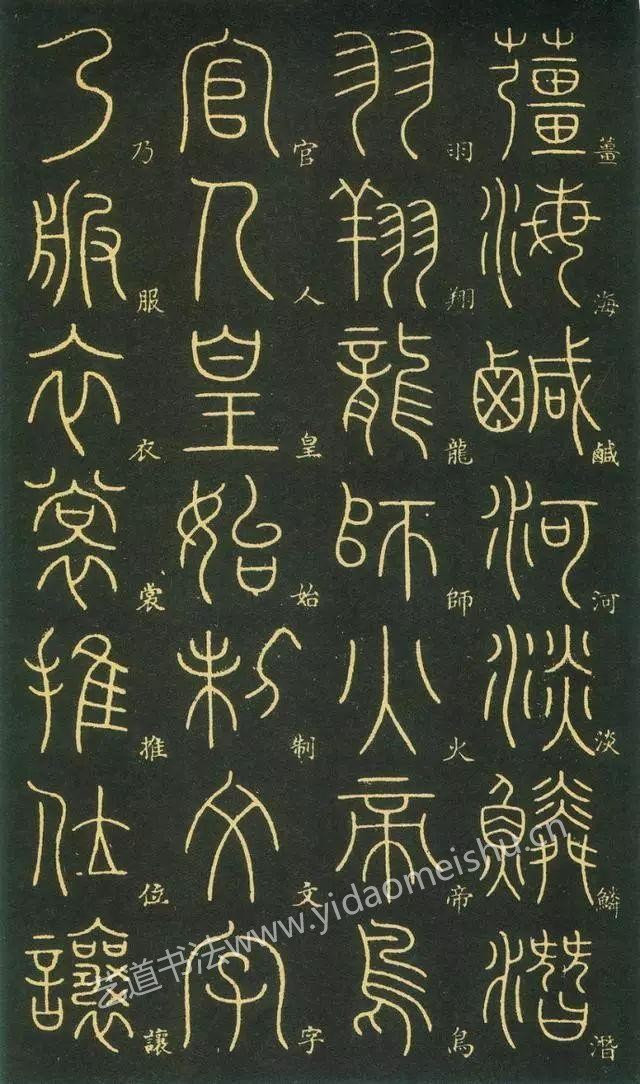 薑海鹹河淡鱗潛
薑海鹹河淡鱗潛
羽翔龍師火帝鳥
羽翔龍師火帝鳥
官人皇始制文字
官人皇始制文字
乃服衣裳推位讓
乃服衣裳推位讓
艺道书法www.yidaomeishu.cn